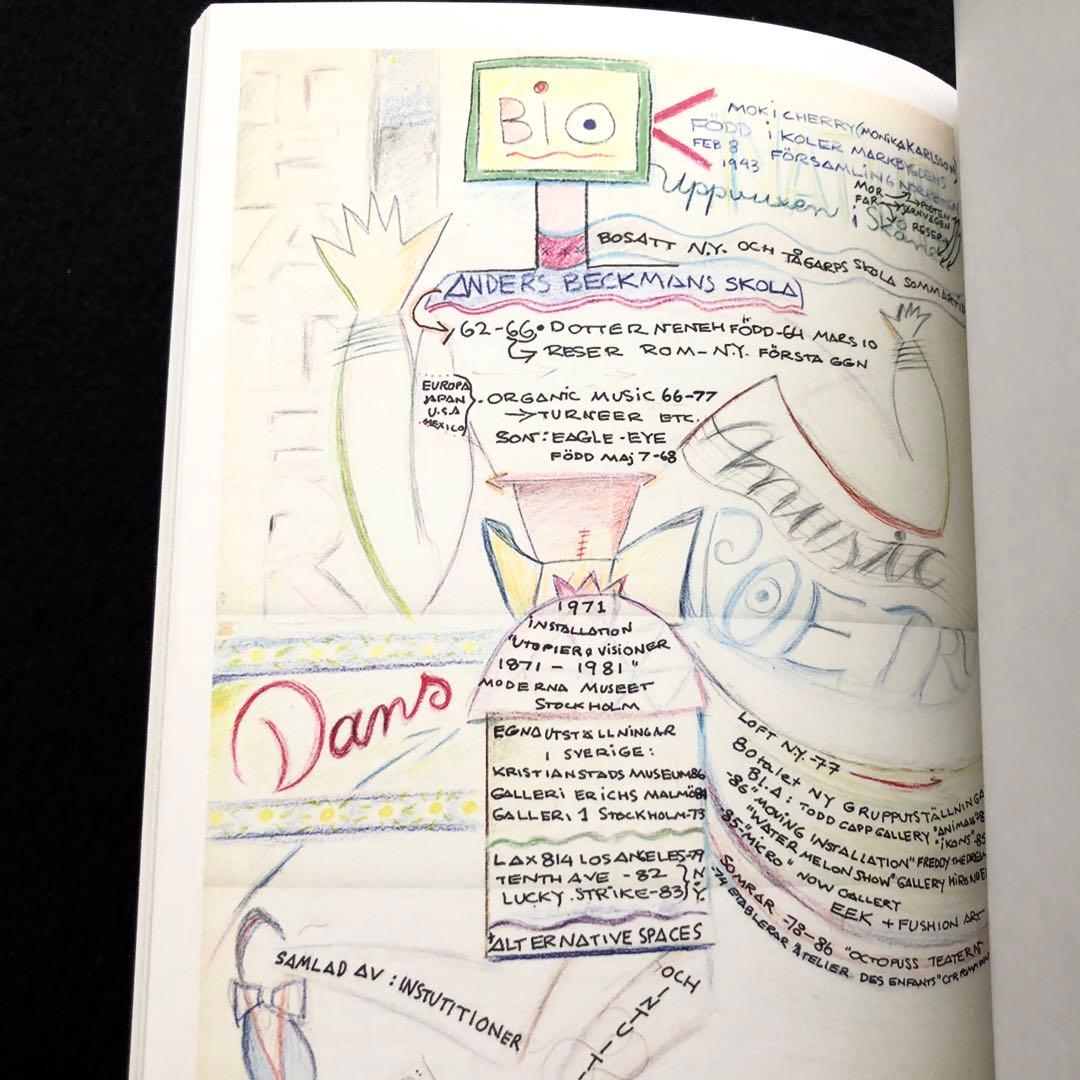 BiO
MOKI CHERRY (MONIKA KARLSSON)
FÖDD i KOLER MARKBYGDENS
FEB 8 FÖRSAMLING
1943
MOR
FAR
Uppvuxen i Skåne
BOSATT N.Y. OCH TÅGARPS SKOLA
ANDERS BECKMANS SKOLA
62-66 • DOTTER NENEH FÖDD-64 MARS 10
RESER ROM-N.Y. FÖRSTA GGN
EUROPA
JAPAN
U.S.A
MEXICO
ORGANIC MUSIC 66-77
TURNEER ETC.
SON: EAGLE-EYE
FÖDD MAJ 7-68
music
POETR
1971
INSTALLATION
"UTOPIER & VISIONER
1871 - 1981"
MODERNA MUSEET
STOCKHOLM
Dans
EGNA UTSTÄLLNINGAR
I SVERIGE:
KRISTIANSTADS MUSEUM 86
GALLERI ERICHS MALMÖ
GALLERI 1 STOCKHOLM-73
LAX 814 LOS ANGELES-79
TENTH AVE -82 } N.
LUCKY STRIKE-83 } Y.
ALTERNATIVE SPACES
LOFT N.Y.-77
80talet NY GRUPPUTSTÄLLNINGA
BL.A: TODD CAPP GALLERY "ANIMALS"
"IKONS"-85
-86 "MOVING INSTALLATION" FREDDY THE DREAM
"WATER MELON SHOW" GALLERY
-85 "MICRO" NOW GALLERY
EEK + FUSHION ART
SOMRAR -78-86 "OCTOPUSS TEATERN
-74 ETABLERAR ATELIER DES ENFANTS"
SAMLAD AV: INSTUTITIONER
OCH
INTUIT